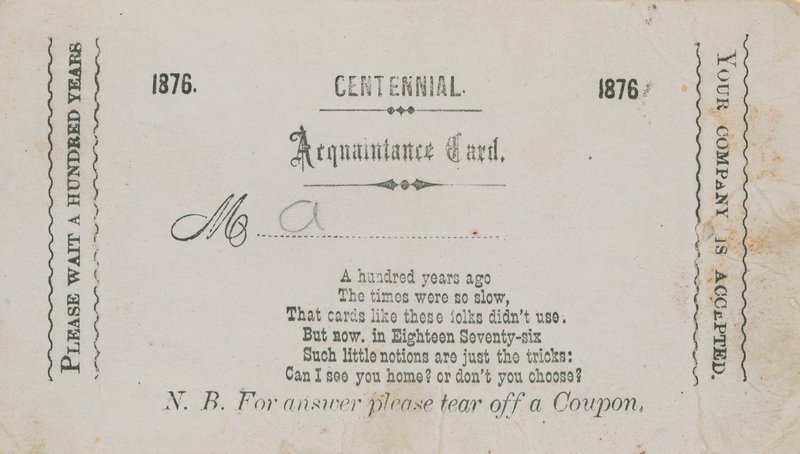 PLEASE WAIT A HUNDRED YEARS
1876.
CENTENNIAL.
1876
Acquaintance Card.
M a
A hundred years ago
The times were so slow,
That cards like these folks didn't use.
But now. in Eighteen Seventy-six
Such little notions are just the tricks:
Can I see you home? or don't you choose?
N. B. For answer please tear off a Coupon.
YOUR COMPANY IS ACCEPTED.